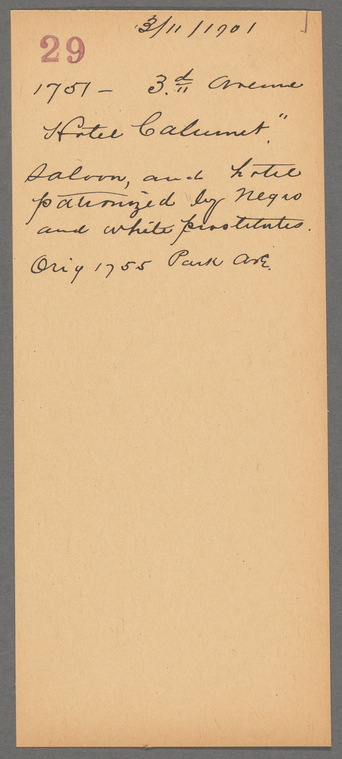 3/11/1901
29
1751 - 3.d Avenue
"Hotel Calumet".
Saloon, and hotel
patronized by Negro
and white prostitutes.
Orig 1755 Park Ave.